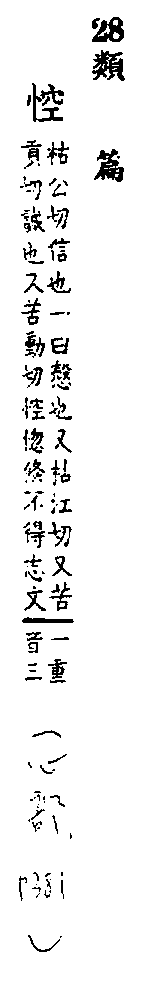 28類篇
悾
枯公切信也一曰慤也又枯江切又苦
貢切誠也又苦動切悾憁倏不得志文
一重
音三
(心部,
)